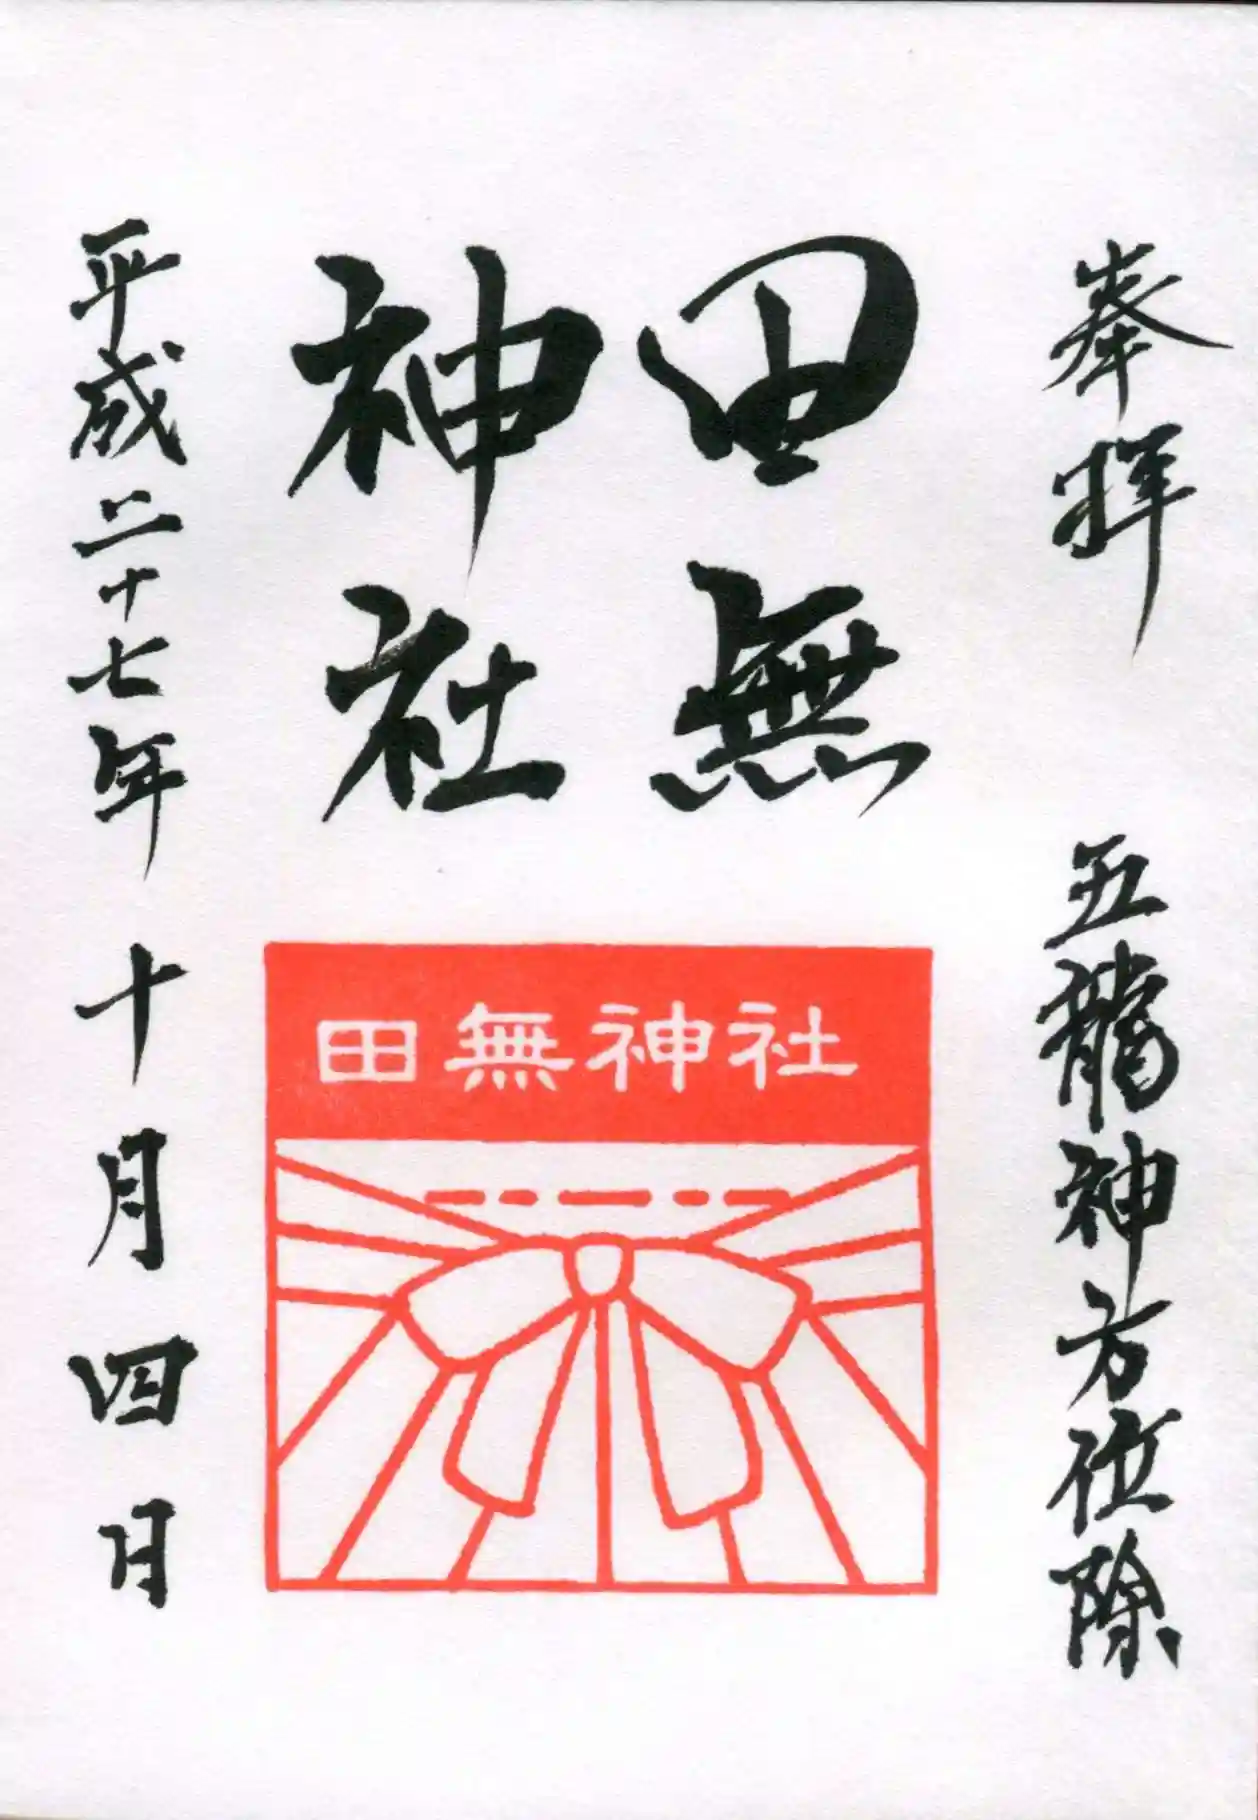 奉拝
五龍神方位除
田無
神社
田無神社
平成二十七年十月四日